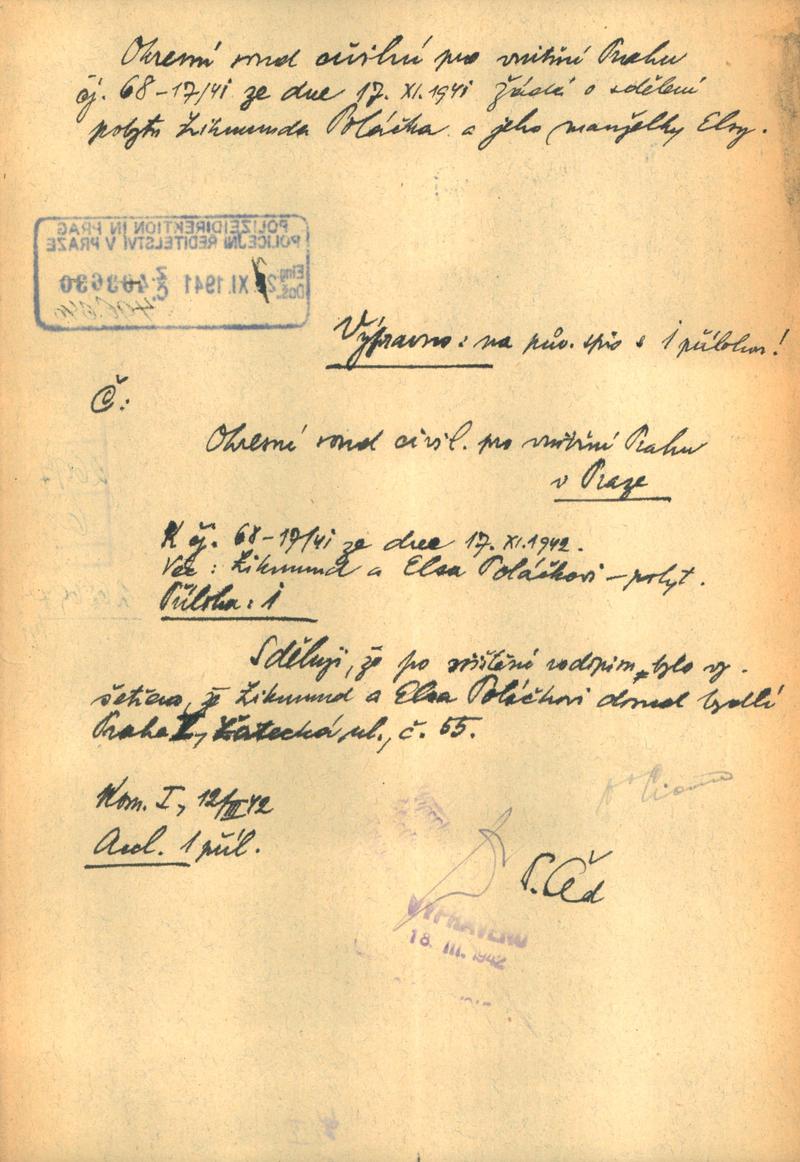 Okresní soud civilní pro vnitřní Prahu
čj. 68-17/41 ze dne 17. XI. 1941 žádá o sdělení
pobytu Zikmunda Poláčka a jeho manželky Elsy.
POLIZEIDIREKTION IN PRAG
POLICEJNÍ ŘEDITELSTVÍ V PRAZE
Eing. Doš. XI. 1941 Z. Č. 403630
Výpravno: na pův. spis s 1 přílohou!
Č:
Okresní soud civil. pro vnitřní Prahu
v Praze
K čj. 68-17/41 ze dne 17. XI. 1942.
Věc: Zikmund a Elsa Poláčkovi – pobyt.
Příloha: 1
Sděluji, že po zjištění rodopisu bylo vy-
šetřeno, že Zikmund a Elsa Poláčkovi dosud bydlí
Praha I, Žatecká ul., č. 55.
Kom. I, 12/III 42
Adl. 1 příl.
VYPRAVENO
18. III. 1942